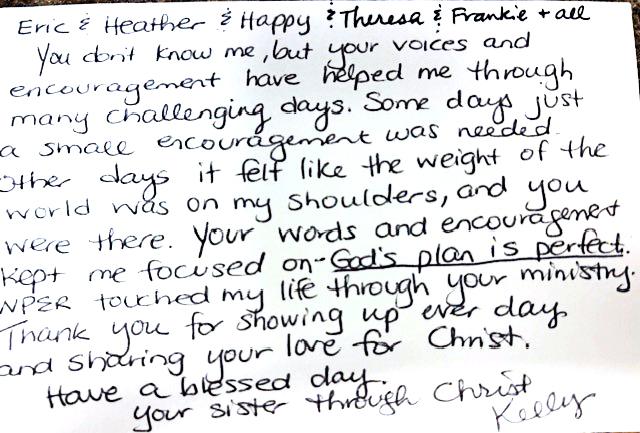 Eric & Heather & Happy & Theresa & Frankie + all
You don't know me, but your voices and
encouragement have helped me through
many challenging days. Some days just
a small encouragement was needed.
Other days it felt like the weight of the
world was on my shoulders, and you
were there. Your words and encouragement
kept me focused on - God's plan is perfect.
WPER touched my life through your ministry.
Thank you for showing up ever day
and sharing your love for Christ.
Have a blessed day.
your sister through Christ
Kelly